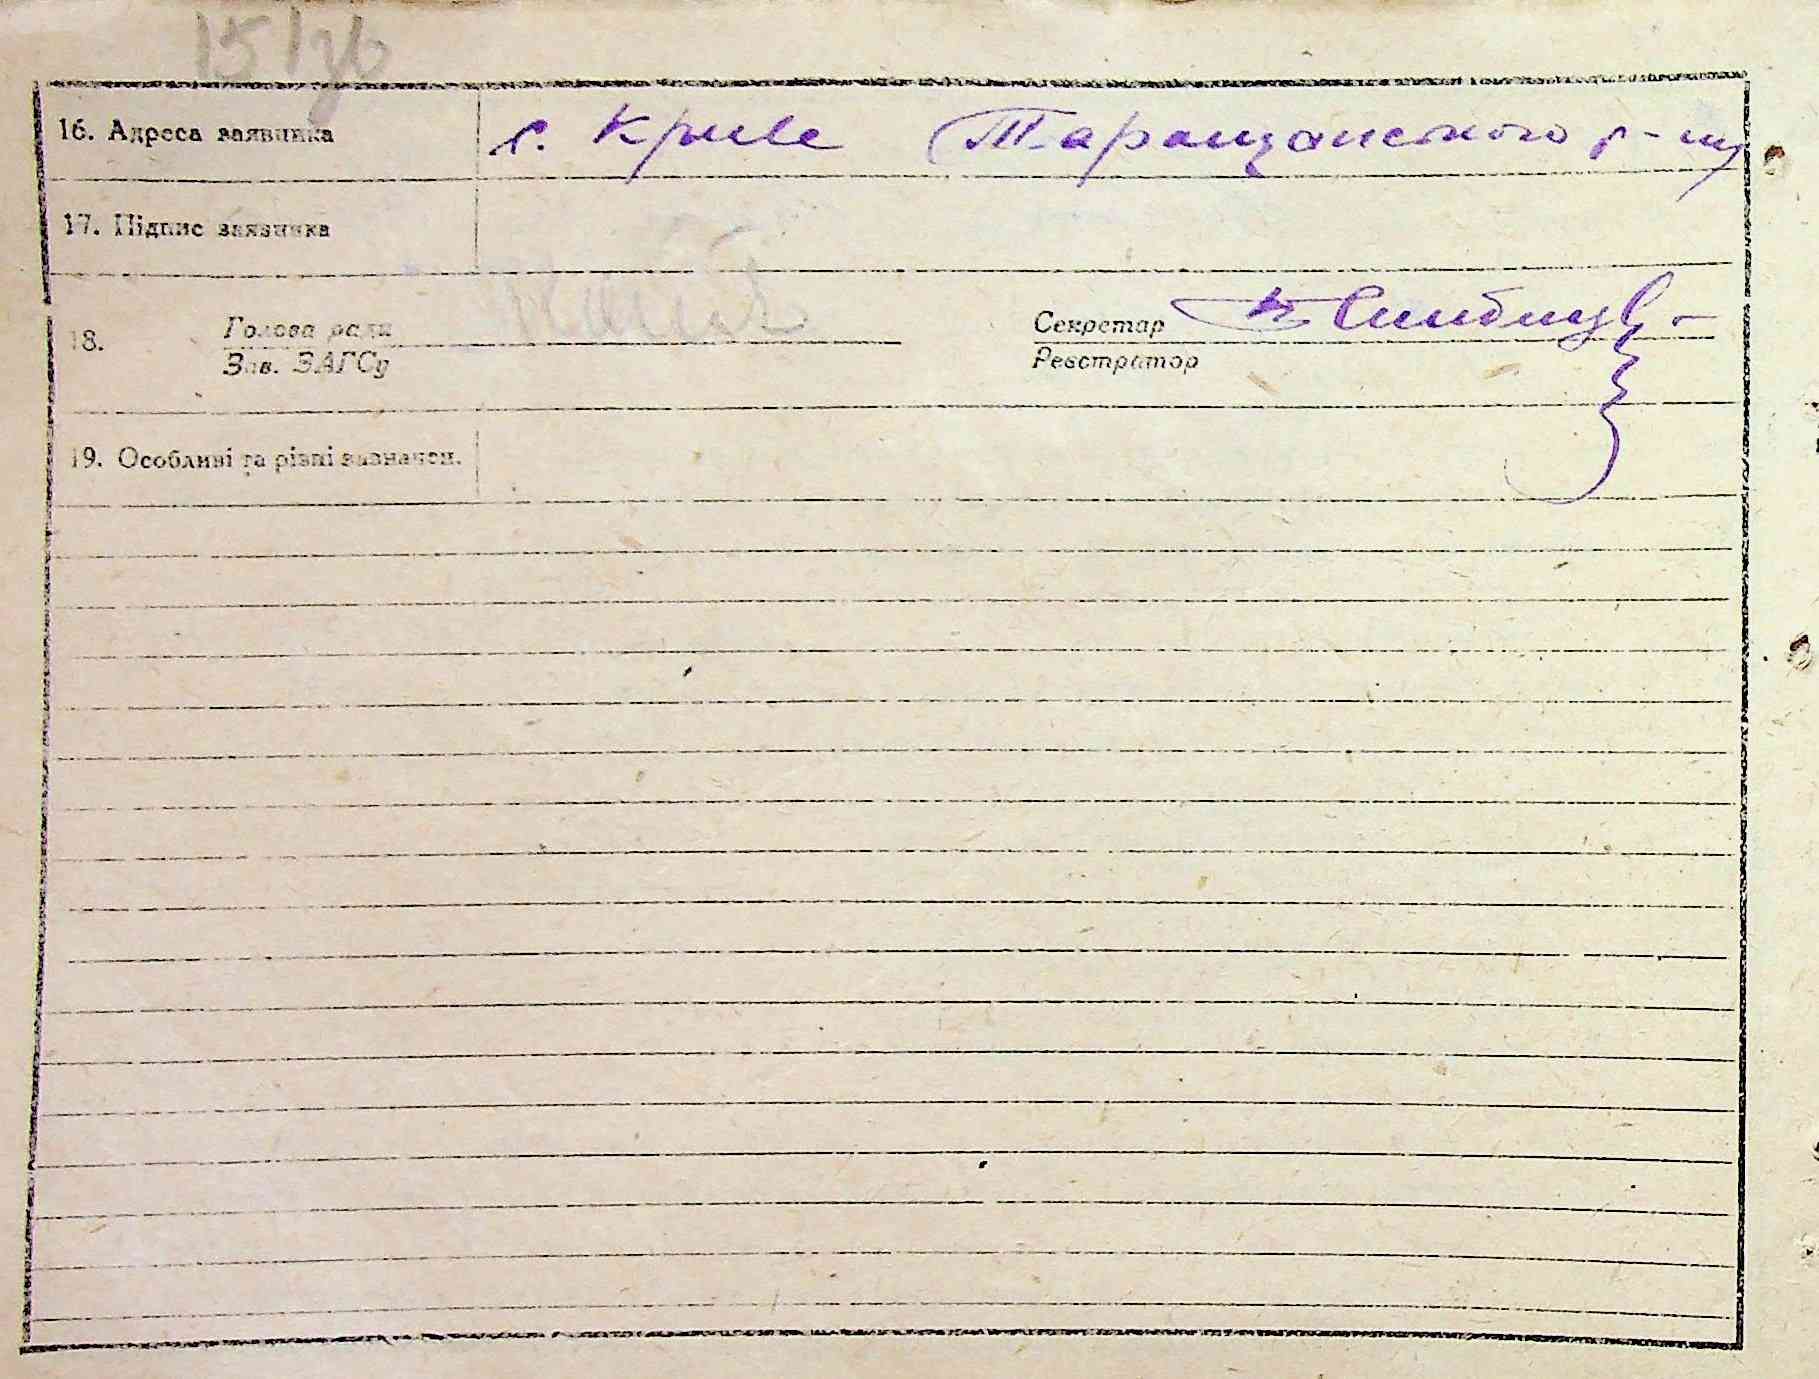 151зв
16. Адреса заявника с. Криве Таращанського р-ну
17. Підпис заявника
18. Голова ради Секретар
Зав. ЗАГСу Реєстратор
19. Особливі та різні зазначен.